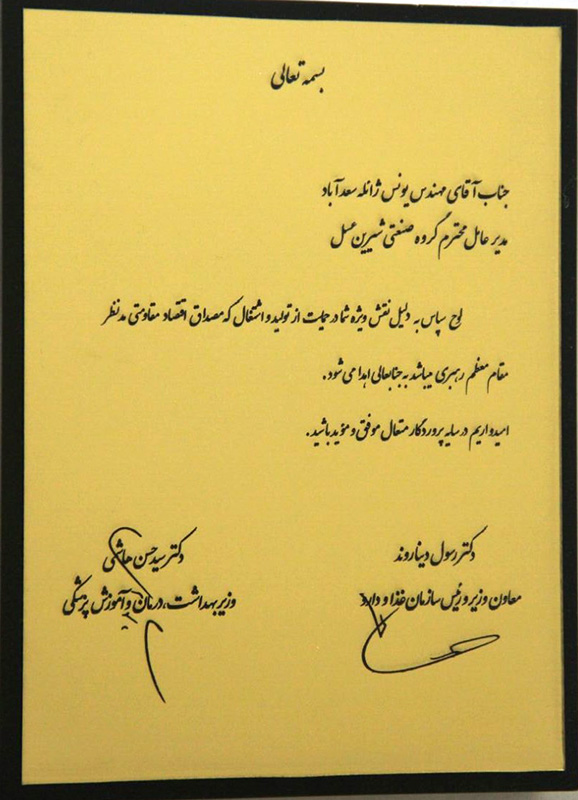 بسمه تعالی
جناب آقای مهندس یونس ژائله سعدآباد
مدیر عامل محترم گروه صنعتی شیرین عسل
لوح سپاس به دلیل نقش ویژه شما در حمایت از تولید و اشتغال که مصداق اقتصاد مقاومتی مدنظر
مقام معظم رهبری میباشد به جنابعالی اهدا می شود.
امیدواریم در سایه پروردگار متعال موفق و مؤید باشید.
دکتر رسول دیناروند
معاون وزیر و رئیس سازمان غذا و دارو
دکتر سید حسن هاشمی
وزیر بهداشت، درمان و آموزش پزشکی